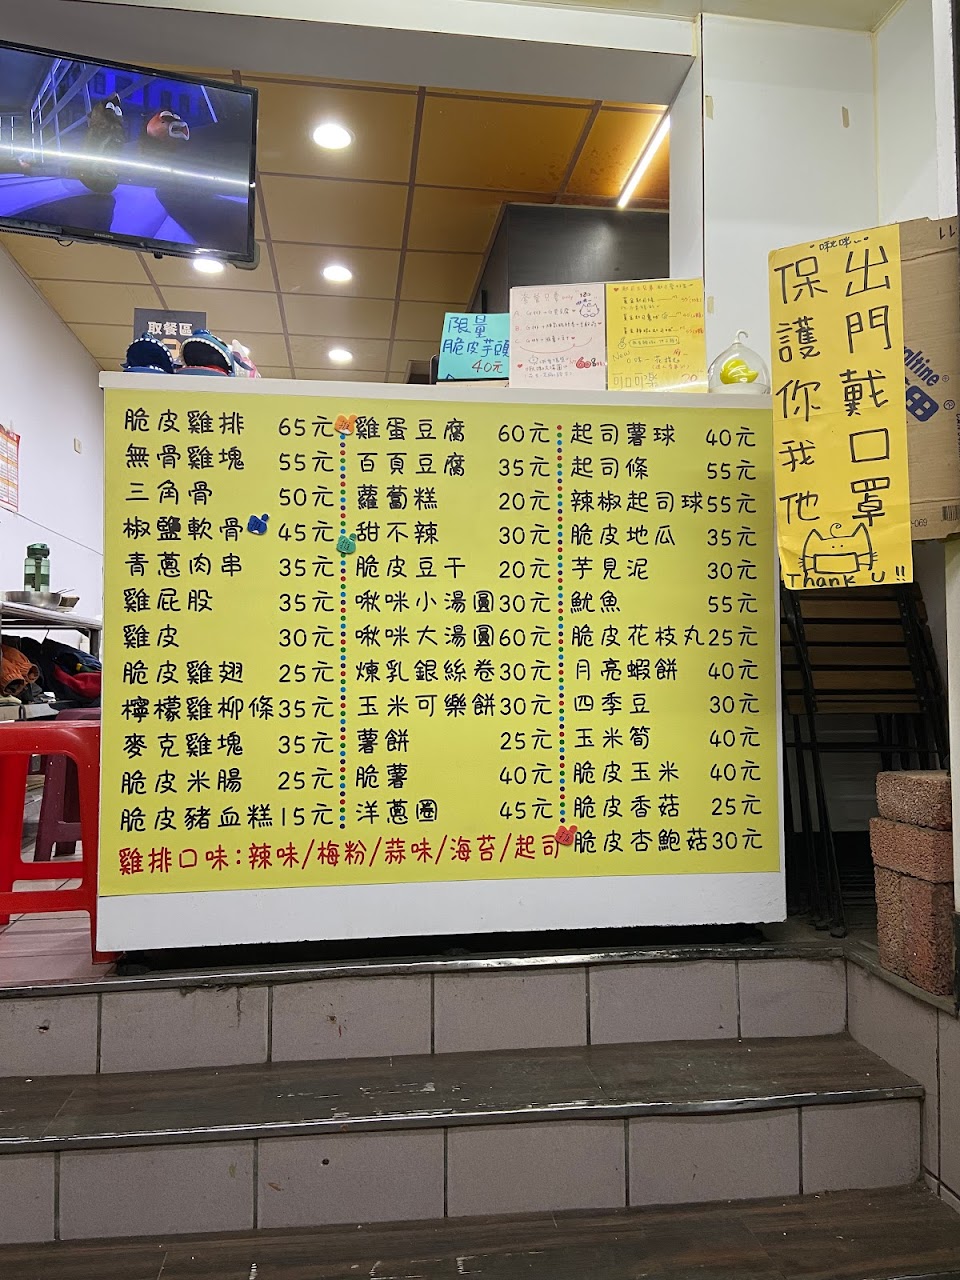 取餐區
限量
脆皮芋頭
40元
可口可樂 20
"啾咪"
出門戴口罩
保護你我他
Thank U !!
脆皮雞排 65元
無骨雞塊 55元
三角骨 50元
椒鹽軟骨 45元
青蔥肉串 35元
雞屁股 35元
雞皮 30元
脆皮雞翅 25元
檸檬雞柳條 35元
麥克雞塊 35元
脆皮米腸 25元
脆皮豬血糕 15元
雞蛋豆腐 60元
百頁豆腐 35元
蘿蔔糕 20元
甜不辣 30元
脆皮豆干 20元
啾咪小湯圓 30元
啾咪大湯圓 60元
煉乳銀絲卷 30元
玉米可樂餅 30元
薯餅 25元
脆薯 40元
洋蔥圈 45元
起司薯球 40元
起司條 55元
辣椒起司球 55元
脆皮地瓜 35元
芋見泥 30元
魷魚 55元
脆皮花枝丸 25元
月亮蝦餅 40元
四季豆 30元
玉米筍 40元
脆皮玉米 40元
脆皮香菇 25元
脆皮杏鮑菇 30元
雞排口味:辣味/梅粉/蒜味/海苔/起司